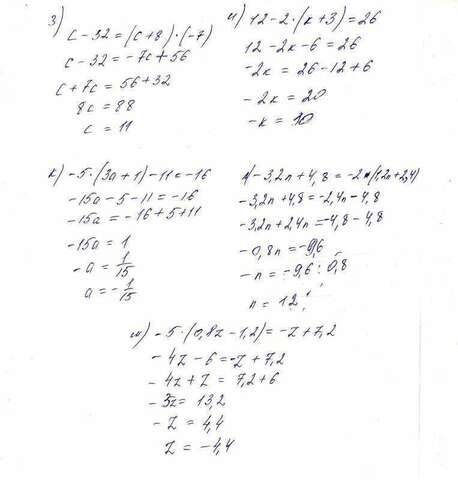 з) c - 32 = (c + 8) · (-7)
c - 32 = -7c + 56
c + 7c = 56 + 32
8c = 88
c = 11
и) 12 - 2 · (k + 3) = 26
12 - 2k - 6 = 26
-2k = 26 - 12 + 6
-2k = 20
-k = 10
к) -5 · (3a + 1) - 11 = -16
-15a - 5 - 11 = -16
-15a = -16 + 5 + 11
-15a = 1
-a = 1/15
a = -1/15
л) -3,2n + 4,8 = -2 · (1,2n + 2,4)
-3,2n + 4,8 = -2,4n - 4,8
-3,2n + 2,4n = -4,8 - 4,8
-0,8n = -9,6
-n = -9,6 : 0,8
n = 12
м) -5 · (0,8z - 1,2) = -z + 7,2
-4z - 6 = -z + 7,2
-4z + z = 7,2 + 6
-3z = 13,2
-z = 4,4
z = -4,4